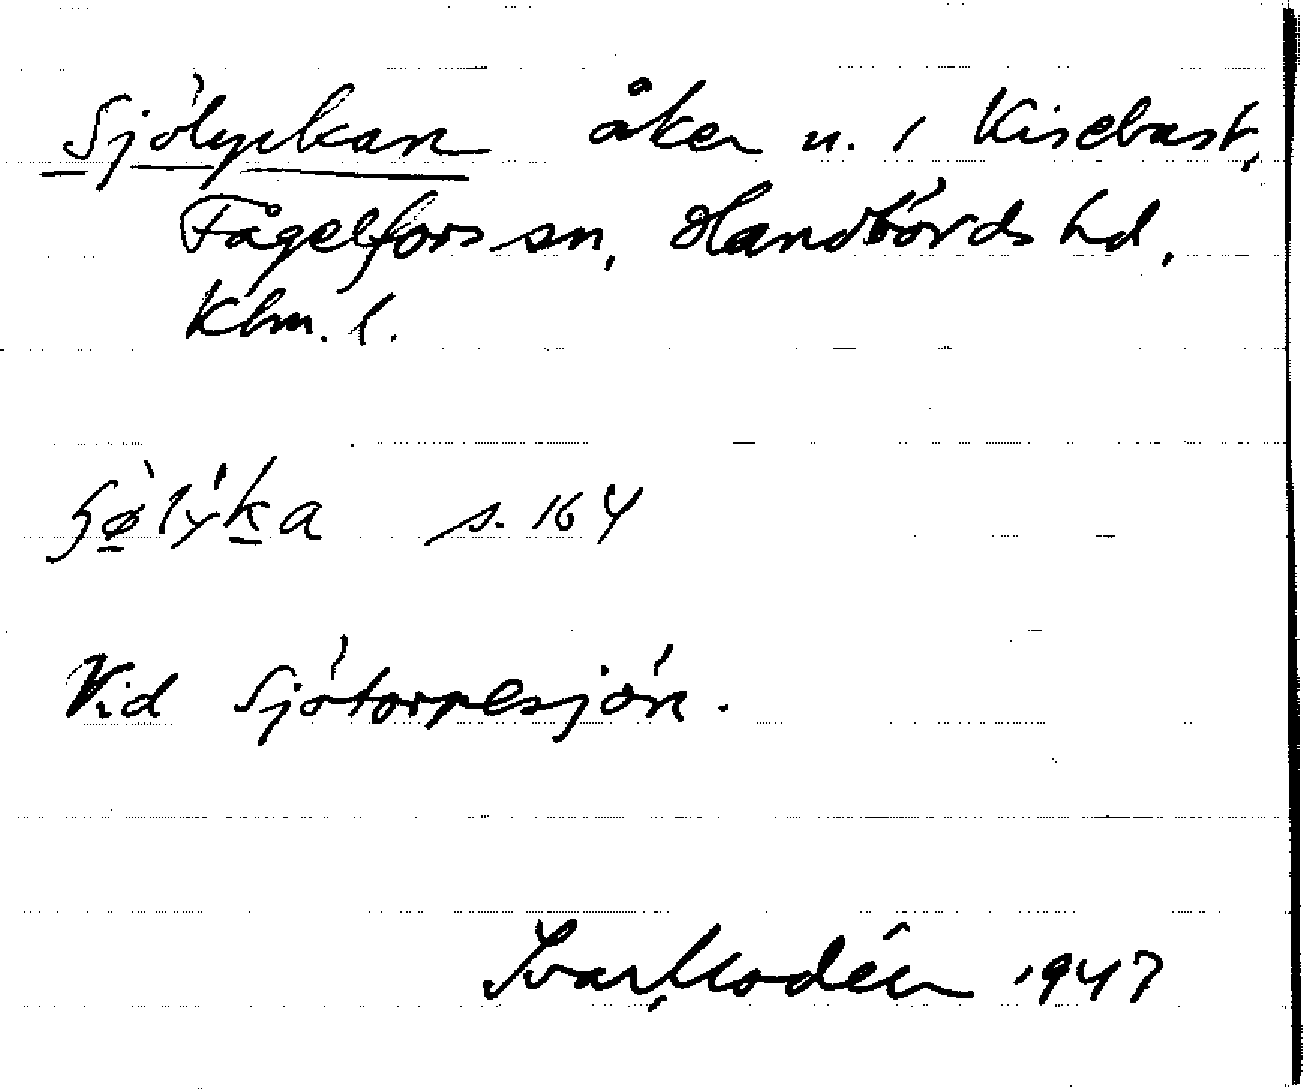 Sjölyckan åker u. i Kisebast,
Fågelfors sn, Handbörds hd,
Klm. l.
s. 164
Vid Sjötorpesjön.
Ivar Modéer 1947